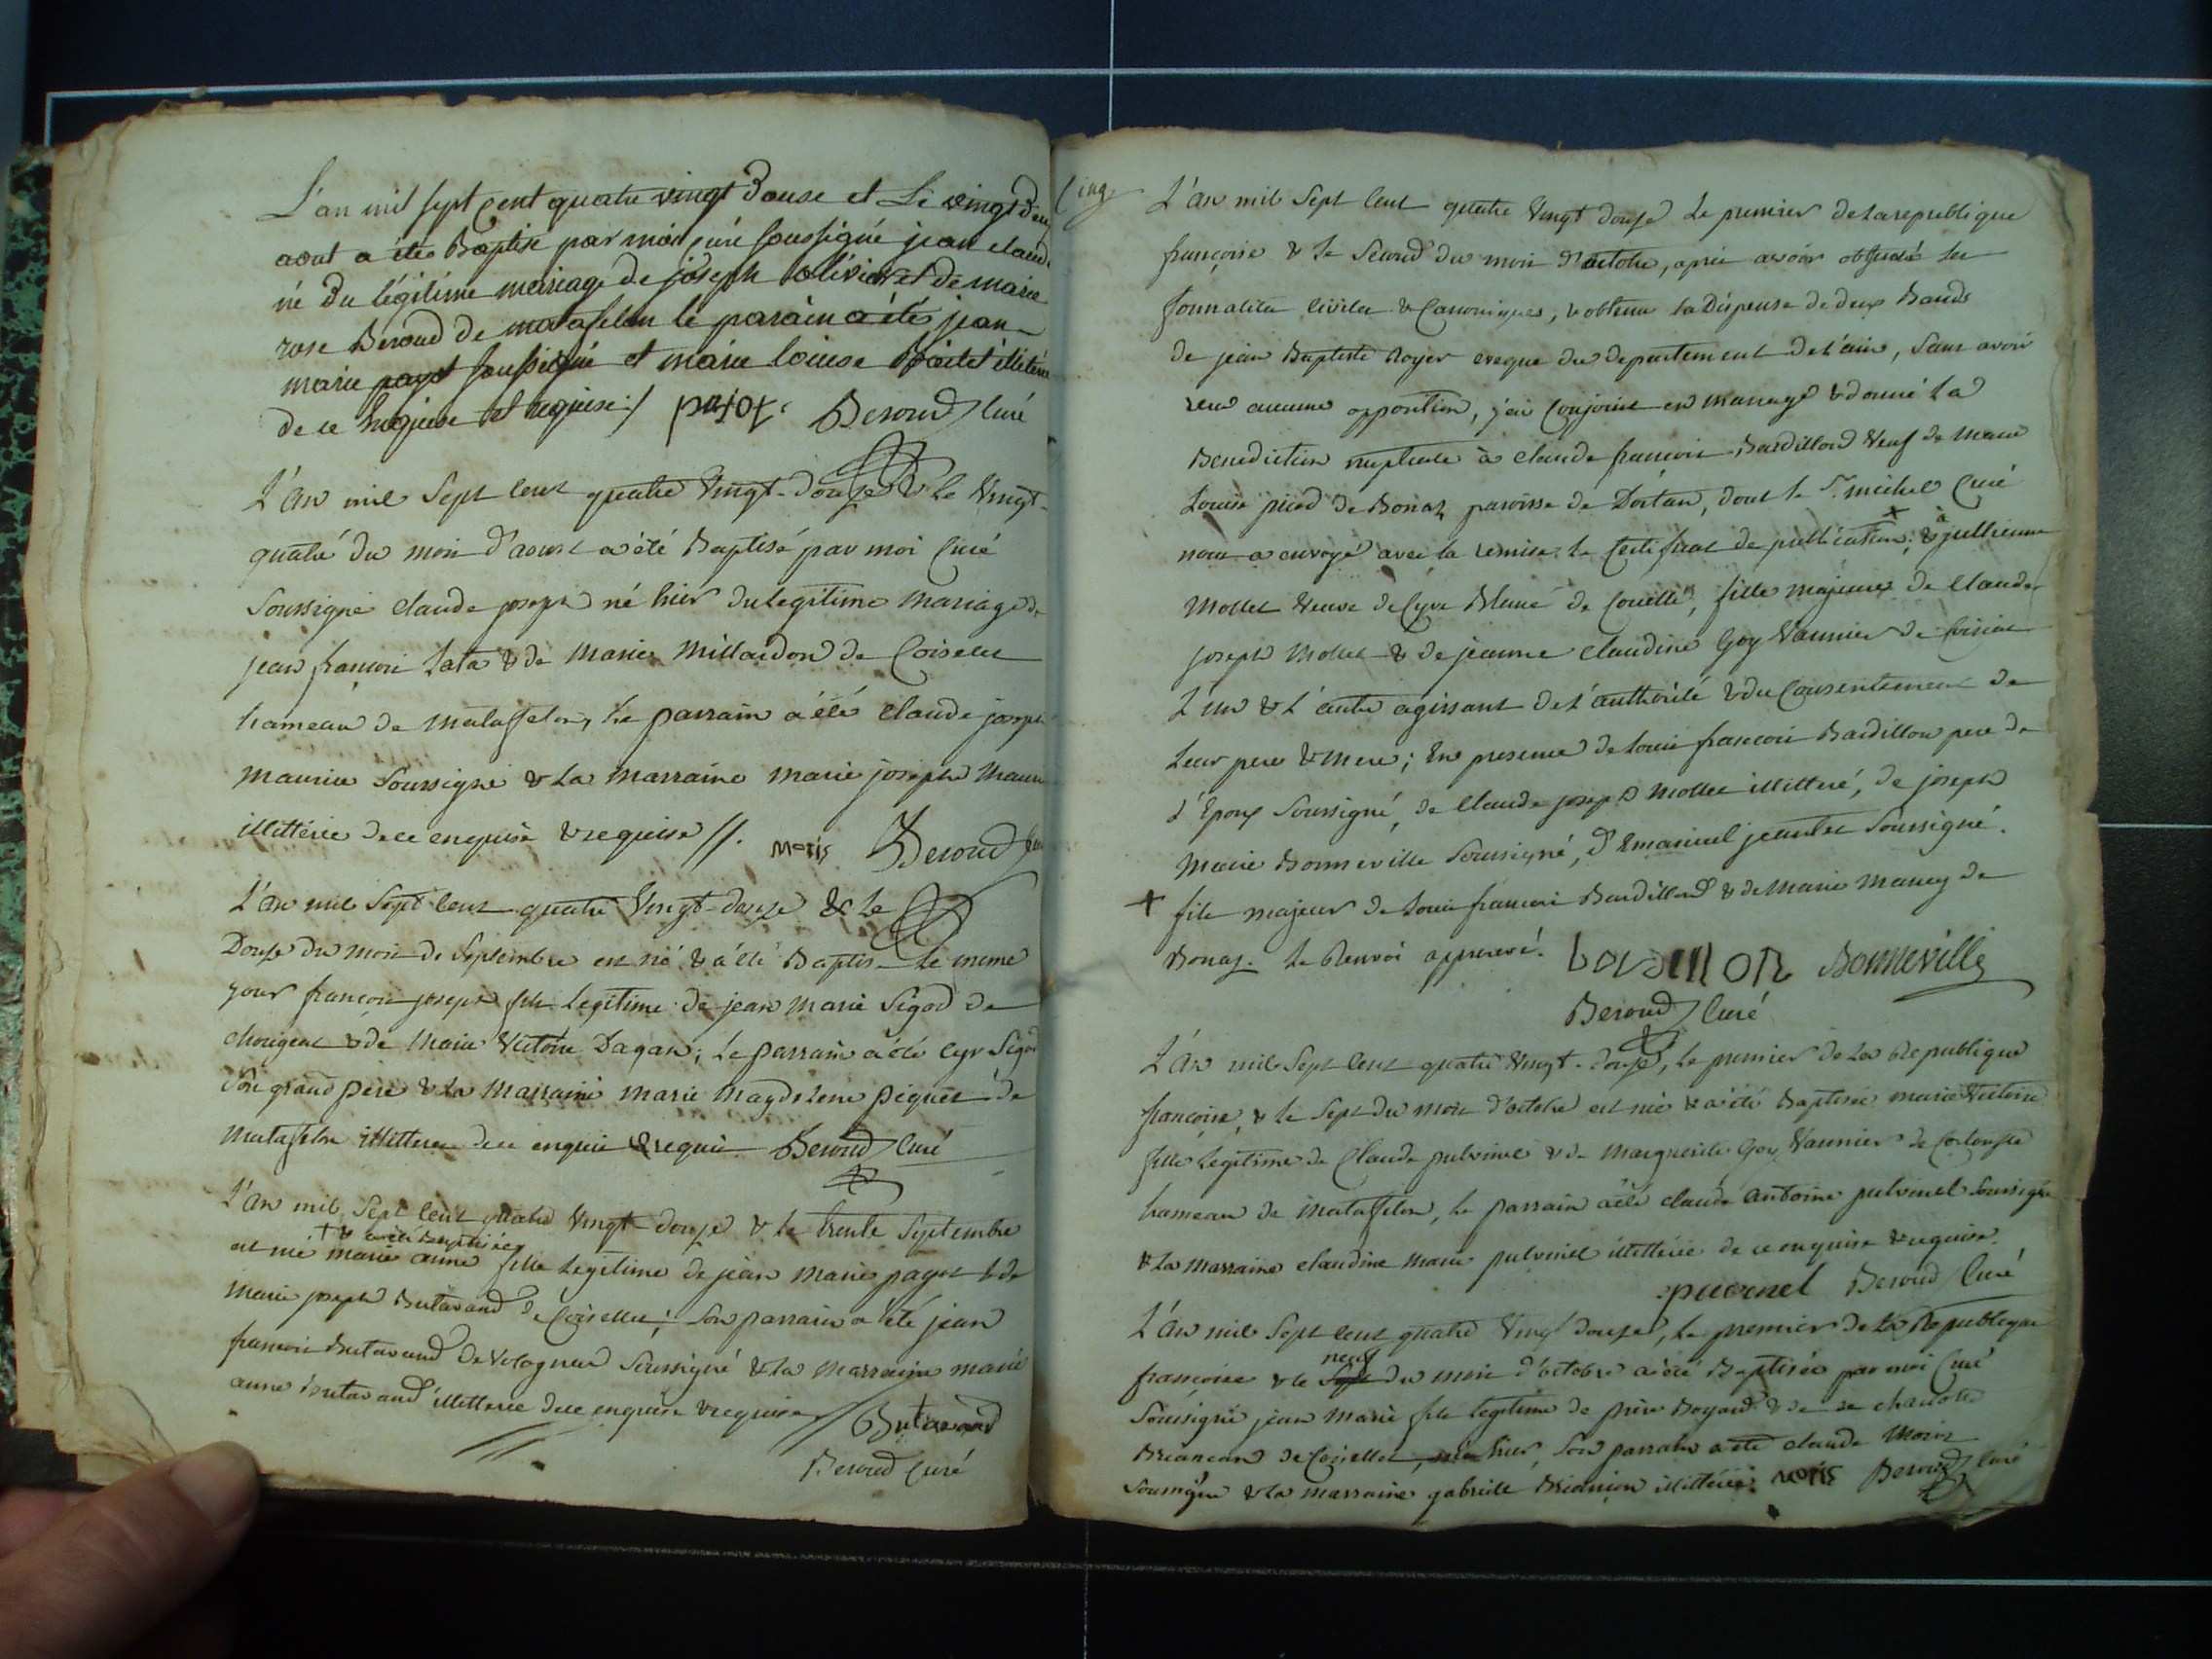 L'an mil sept cent quatre vingt douse et Le vingt deu
aout a été Baptisé par moi curé soussigné jean claude
né du légitime mariage de joseph olivier et de marie
rose Beroud de mataselon le parain a été jean
marie payot soussigné et marie louise illitéré
de ce enquise et requise :/ payot. Beroud Curé
L'an mil Sept Cent quatre Vingt-douze & le Vingt-
quatre du mois d'aoust a été Baptisé par moi Curé
Soussigné claude joseph né hier du legitime Mariage de
jean francois Lata & de Marie Millardon de Coiselet
hameau de Matafelon, le parrain a été claude joseph
maurice Soussigné & la marraine marie joseph Mauri
illittérée de ce enquise & requise //. moris Beroud Cu
L'an mil Sept Cent quatre Vingt-douze & le
Douze du mois de Septembre est né & a été Baptisé le meme
jour francois joseph fils Legitime de jean Marie Sigod de
chougeat & de Marie Victoire Dagan; le parrain a été cyr Sigod
Son grand pere & la Marraine marie Magdelene piquet de
Matafelon illitteree de ce enquise & requise Beroud Curé
L'an mil Sept Cent quatre Vingt-douze & le trente Septembre
+ & a été baptisée
est née marie anne fille Legitime de jean Marie payot & de
Marie joseph Butavand de Coisellet; Son parrain a été jean
francois Butavand de Volognat Soussigné & la Marraine marie
anne butavand illitterée de ce enquise & requise // Butavand
Beroud Curé
Cinq
L'an mil Sept Cent quatre Vingt douze le premier de la republique
françoise & le Second du mois d'octobre, après avoir observé les
formalités civiles & Canoniques, & obtenu la Dispense de deux Bands
de jean Baptiste Royer eveque du departement de l'ain, Sans avoir
reçu aucune opposition, j'ai Conjoint en mariage & donné la
Benediction nuptiale à claude francois Bardillond Veuf de Marie
Louise picod de Bonaz paroisse de Dortan, dont le Sr. michel Curé
nous a envoyé avec la remise le certificat de publication; + & à jullienne
Mollet Veuve de Cyre Blanc de Couelle, fille majeure de Claude
joseph Mollet & de jeanne claudine Goy Vannier de Corcial
L'un & l'autre agissant de l'authorité & du Consentement de
leur pere & mere; En presence de Louis francois Bardillon pere de
l'Epoux Soussigné, de Claude joseph Mollet illitteré, de joseph
Marie Bonneville Soussigné, d'Emanuel jeantet Soussigné.
+ fils majeur de Louis francois Bardillond & de Marie Maney de
Bonaz. le Renvoi approuvé. bardillon Bonneville
Beroud Curé
L'an mil Sept Cent quatre Vingt-douze, le premier de la Republique
françoise, & le Sept du mois d'octobre est née & a été Baptisée marie Victoire
fille Legitime de Claude pulvinel & de Marguerite Goy Vannier de
hameau de Matafelon, le parrain a été claude Antoine pulvinel Soussigné
& la Marraine claudine Marie pulvinel illitterée de ce enquise & requise.
puvenel Beroud Curé
L'an mil Sept Cent quatre Vingt douze, le premier de la Republique
neuf
francoise & le Sept du mois d'octobre a été Baptisée par moi Curé
Soussigné jean Marie fils legitime de pière Boyard & de de charlotte
Briançon de Coisellet, né hier, Son parrain a été claude Moris
Soussigné & la marraine gabrielle Briançon illittérée. moris Beroud Curé